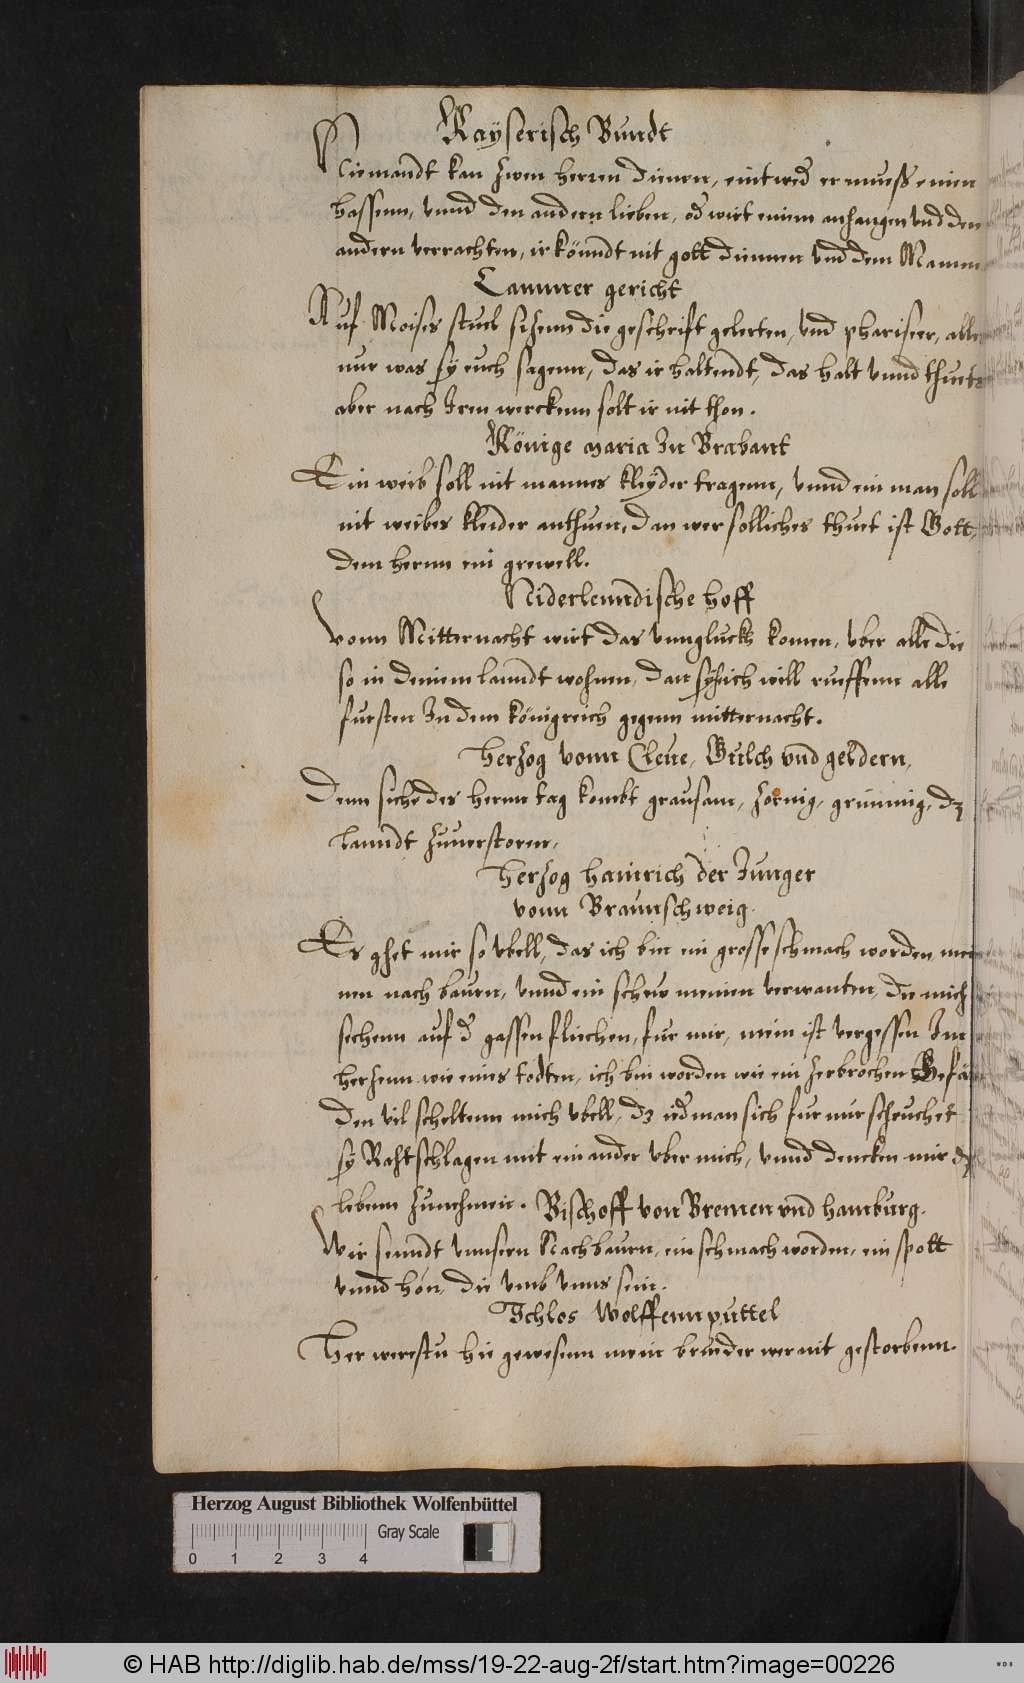 Kayserisch Bundt
Niemandt kan zwen herren dienen, eintwed er muess einen
hassenn, vnnd den andern lieben, od wirt einem anhangen vnd den
andern verrachten, ir könndt nit gott diennen vnd dem Mamm
Cammer gericht
Auf Moises stuel sizenn die geschrift gelerten, vnd phariseer, alle
nur was sy euch sagenn, das ir haltendt, das halt vnnd thuets
aber nach Iren werckenn solt ir nit thon.
Könige maria In Brabant
Ein weib soll nit mannes kleyder tragenn, vnnd ein man soll
nit weibes kleider anthuen, dan wer solliches thuet ist Gott,
dem hernn ein grewell.
Niderlenndische hoff
Vonn Mitternacht wirt das vnngluckh komen, vber alle die
so in deinem lanndt wohnen, dan sych ich will rueffenn alle
fursten In dem königreich gegenn mitternacht.
Herzog vonn Cleue, Gulch vnd geldern,
Denn siche des hernn tag kombt grausam, zornig, grimmig, dz
lanndt zuuerstoren,
Herzog hainrich der Junger
vonn Braunschweig.
Es ghet mir so vbell, das ich bin ein grosse schmach worden, mei
nen nachbauren, vnnd ein schew meinen verwanten, die mich
sechenn auf d gassen fliechen, fur mir, mein ist vergessen Im
herzenn wie eines todten, ich bin worden wie ein zerbrochen Gefä
Den vil scheltenn mich vbell, dz ied man sich fur mir scheuchet
sy Rahtschlagen mit ein ander vber mich, vnnd dencken mir dz
lebenn zunehmen. Bischoff von Bremen vnd hamburg.
Wir senndt vnnsern Nachbaurn, ein schmach worden, ein spott
vnnd hon, die vmb vnns sein.
Schlos Wolffennputtel
Her werestu hie gewesenn mein bruder wer nit gestorbenn.
Herzog August Bibliothek Wolfenbüttel
Gray Scale
0 1 2 3 4
© HAB http://diglib.hab.de/mss/19-22-aug-2f/start.htm?image=00226